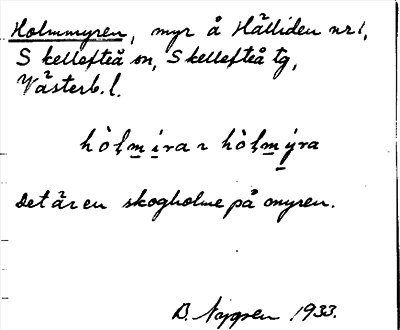 Holmmyren, myr å Hälliden nr 1,
Skellefteå sn, Skellefteå tg,
Västerb. l.
hòl̥m̲i̲ra ~ hòl̥m̲ý̲ra
Det är en skogholme på myren.
B. Nygren 1933.